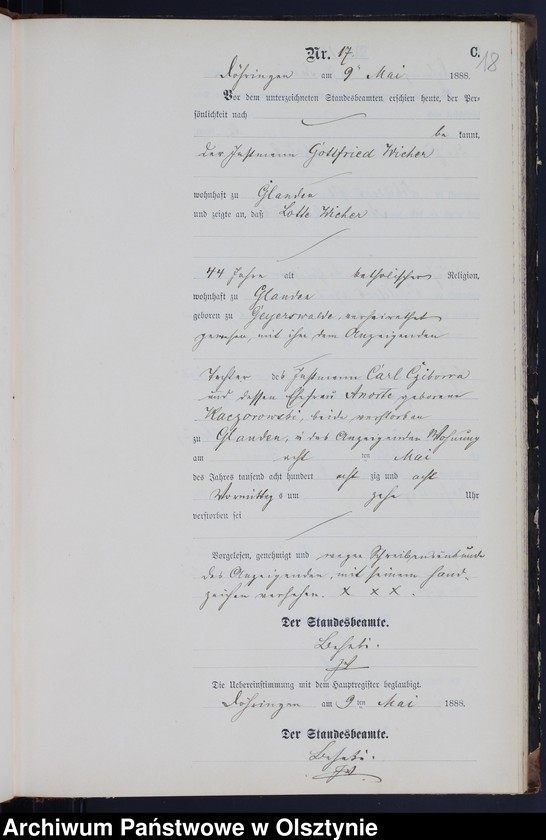 Nr. 17.
C.
18
Döhringen am 9 Mai 1888.
Vor dem unterzeichneten Standesbeamten erschien heute, der Per-
sönlichkeit nach
be kannt,
der Instmann Gottfried Wicher
wohnhaft zu Glanden
und zeigte an, daß Lotte Wicher
44 Jahre alt katholischer Religion,
wohnhaft zu Glanden
geboren zu Geyerswalde, verheirathet
gewesen, mit ihm dem Anzeigenden
Tochter des Instmann Carl Cziborra
und dessen Ehefrau Anorte geborene
Kaczorowski, beide verstorben
zu Glanden, in des Anzeigenden Wohnung
am acht ten Mai
des Jahres tausend acht hundert acht zig und acht
Vormittags um zehn Uhr
verstorben sei
Vorgelesen, genehmigt und wegen Schreibensunkunde
des Anzeigenden, mit seinem Hand-
zeichen versehen. x x x .
Der Standesbeamte.
Die Uebereinstimmung mit dem Hauptregister beglaubigt.
Döhringen am 9ten Mai 1888.
Der Standesbeamte.
Archiwum Państwowe w Olsztynie